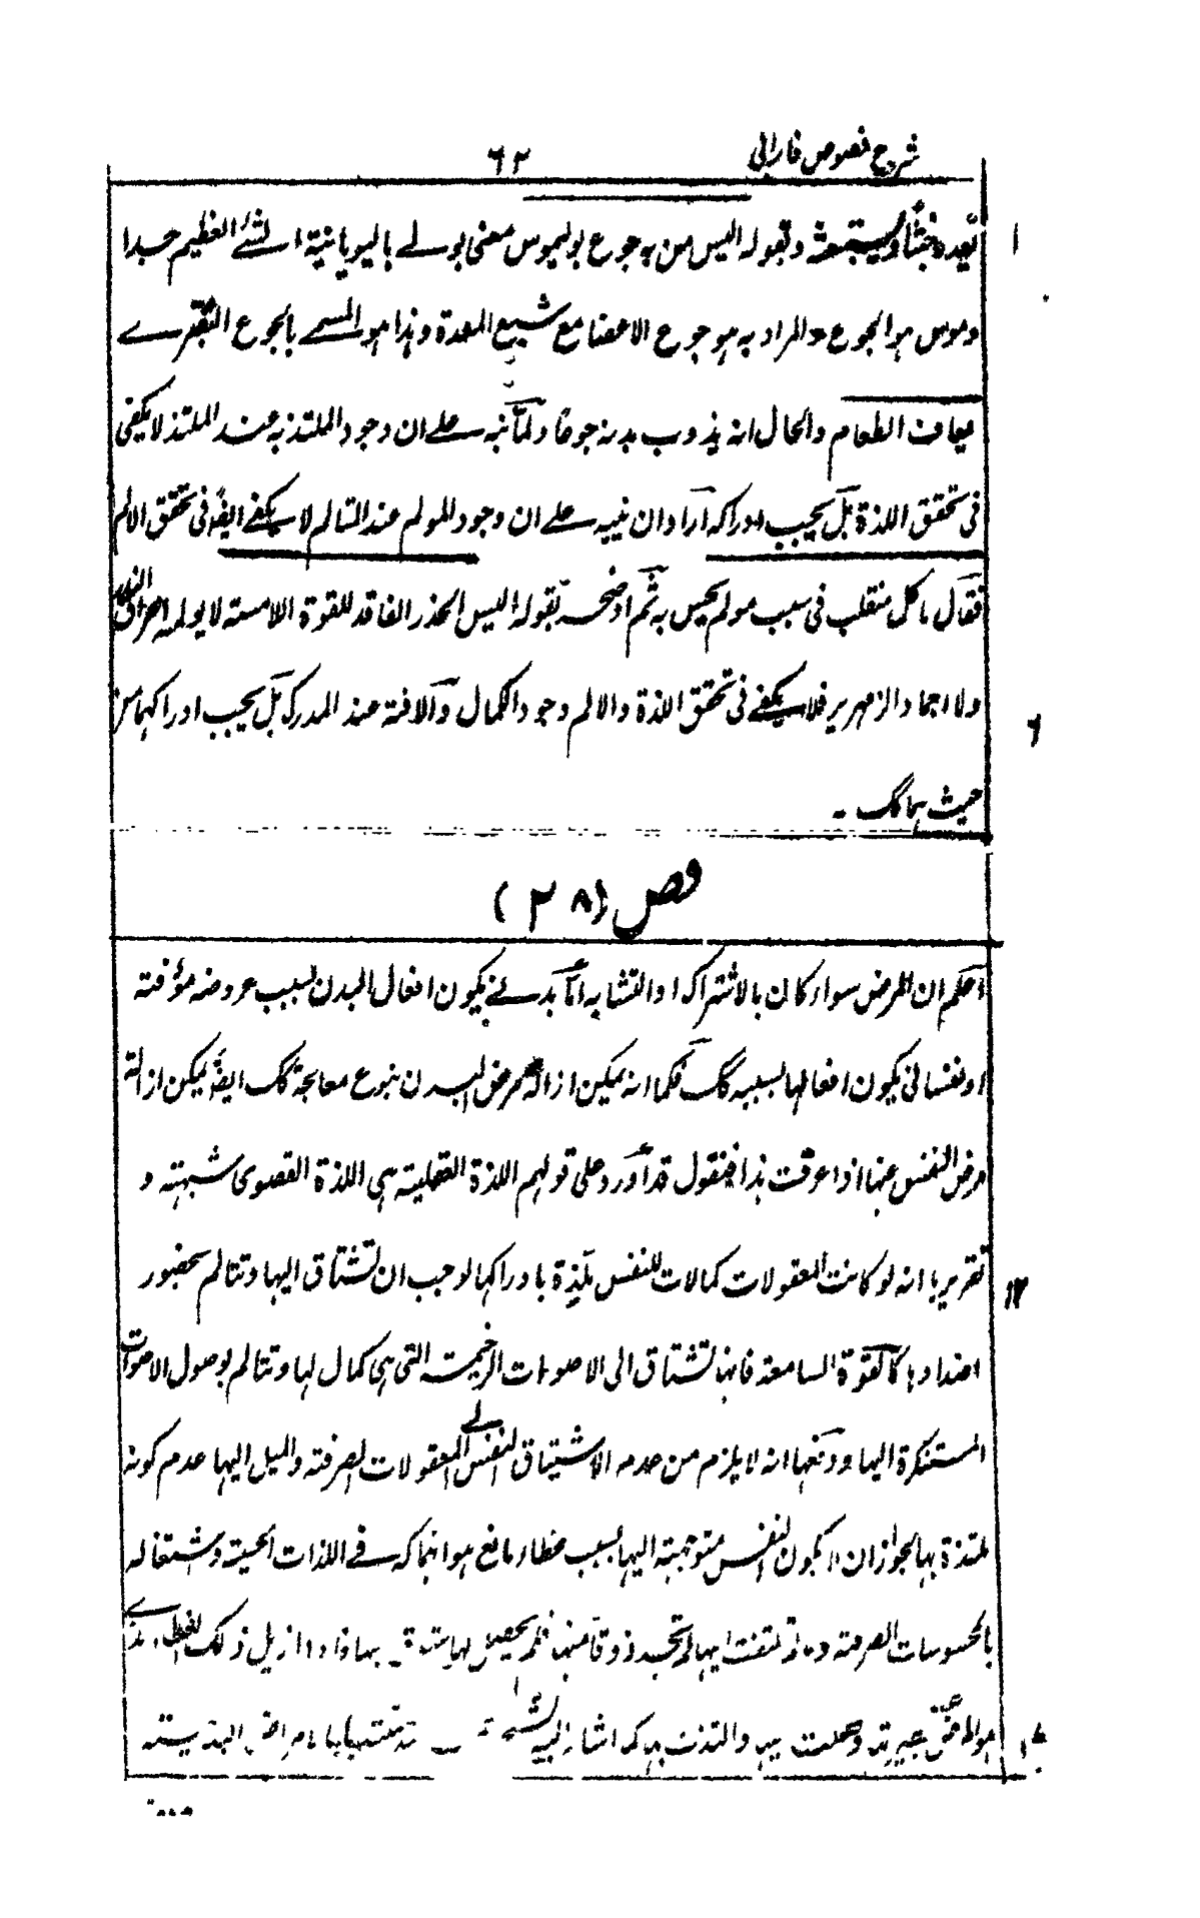 شرح فصوص فارابی ۶۲
یعده خبثا ویستبشعہ وبقولہ الیس من بہ جوع بولیموس معنی بولے بالیونانیۃ الشئ العظیم جدا ۱
وموس ہو الجوع والمراد بہ ہو جوع الاعضا مع شبع المعدۃ وہذا ہو المسمے بالجوع البقرے
یعاف الطعام والحال انہ یذوب بدنہ جوعا ولما نبہ علے ان وجود الملتذ بہ عند الملتذ لا یکفی
فی تحقق اللذۃ بل یجب ادراکہ اراد ان ینبہ علے ان وجود المولم عند المتالم لا یکفے ایضً فی تحقق الالم
فقال ما کل منقلب فی سبب مولم یحس بہ ثم اوضحہ بقولہ الیس الخدر الفاقد للقوۃ اللامسۃ لا یولمہ احراق النار
ولا اجماد الزمہریر فلا یکفے فی تحقق اللذۃ والالم وجود الکمال والافۃ عند المدرک بل یجب ادراکہما من ۶
حیث ہما کک ۔
فص (۲۸)
اعلم ان المرض سواء کان بالاشتراک او التشابہ اما بدنے یکون افعال البدن بسبب عروضہ مؤفۃ
او نفسانی یکون افعالہا بسببہ کک فکما انہ یمکن ازالۃ مرض البدن بنوع معالجۃ کک ایضً یمکن ازالۃ
مرض النفس عنہا اذا عرفت ہذا فنقول قد اورد علی قولہم اللذۃ العقلیۃ ہی اللذۃ القصوی شبہۃ و
تقریرہا انہ لو کانت المعقولات کمالات للنفس ملذۃ بادراکہا لوجب ان تشتاق الیہا وتتالم بحضور ۱۲
اضدادہا کالقوۃ السامعۃ فانہا تشتاق الی الاصوات الرخیمۃ التی ہی کمال لہا وتتالم بوصول الاصوات
المستنکرۃ الیہا ودفعہا انہ لا یلزم من عدم الاشتیاق النفس الے المعقولات الصرفۃ والمیل الیہا عدم کونہ
ملتذۃ بہا لجواز ان لا یکون النفس متوجہۃ الیہا بسبب غطاء مانع ہو انہماکہ فے اللذات الحسیۃ واشتغالہ
بالمحسوسات الصرفۃ وما لم تلتفت الیہا لم تجد ذوقا منہا فلم یحصل لہا بہا فاذا ازیل ذلک الغطاء الذے
ہو المرض عنہ والتذت بہ کما اشار الیہ الشیخ الامراض البدنیۃ